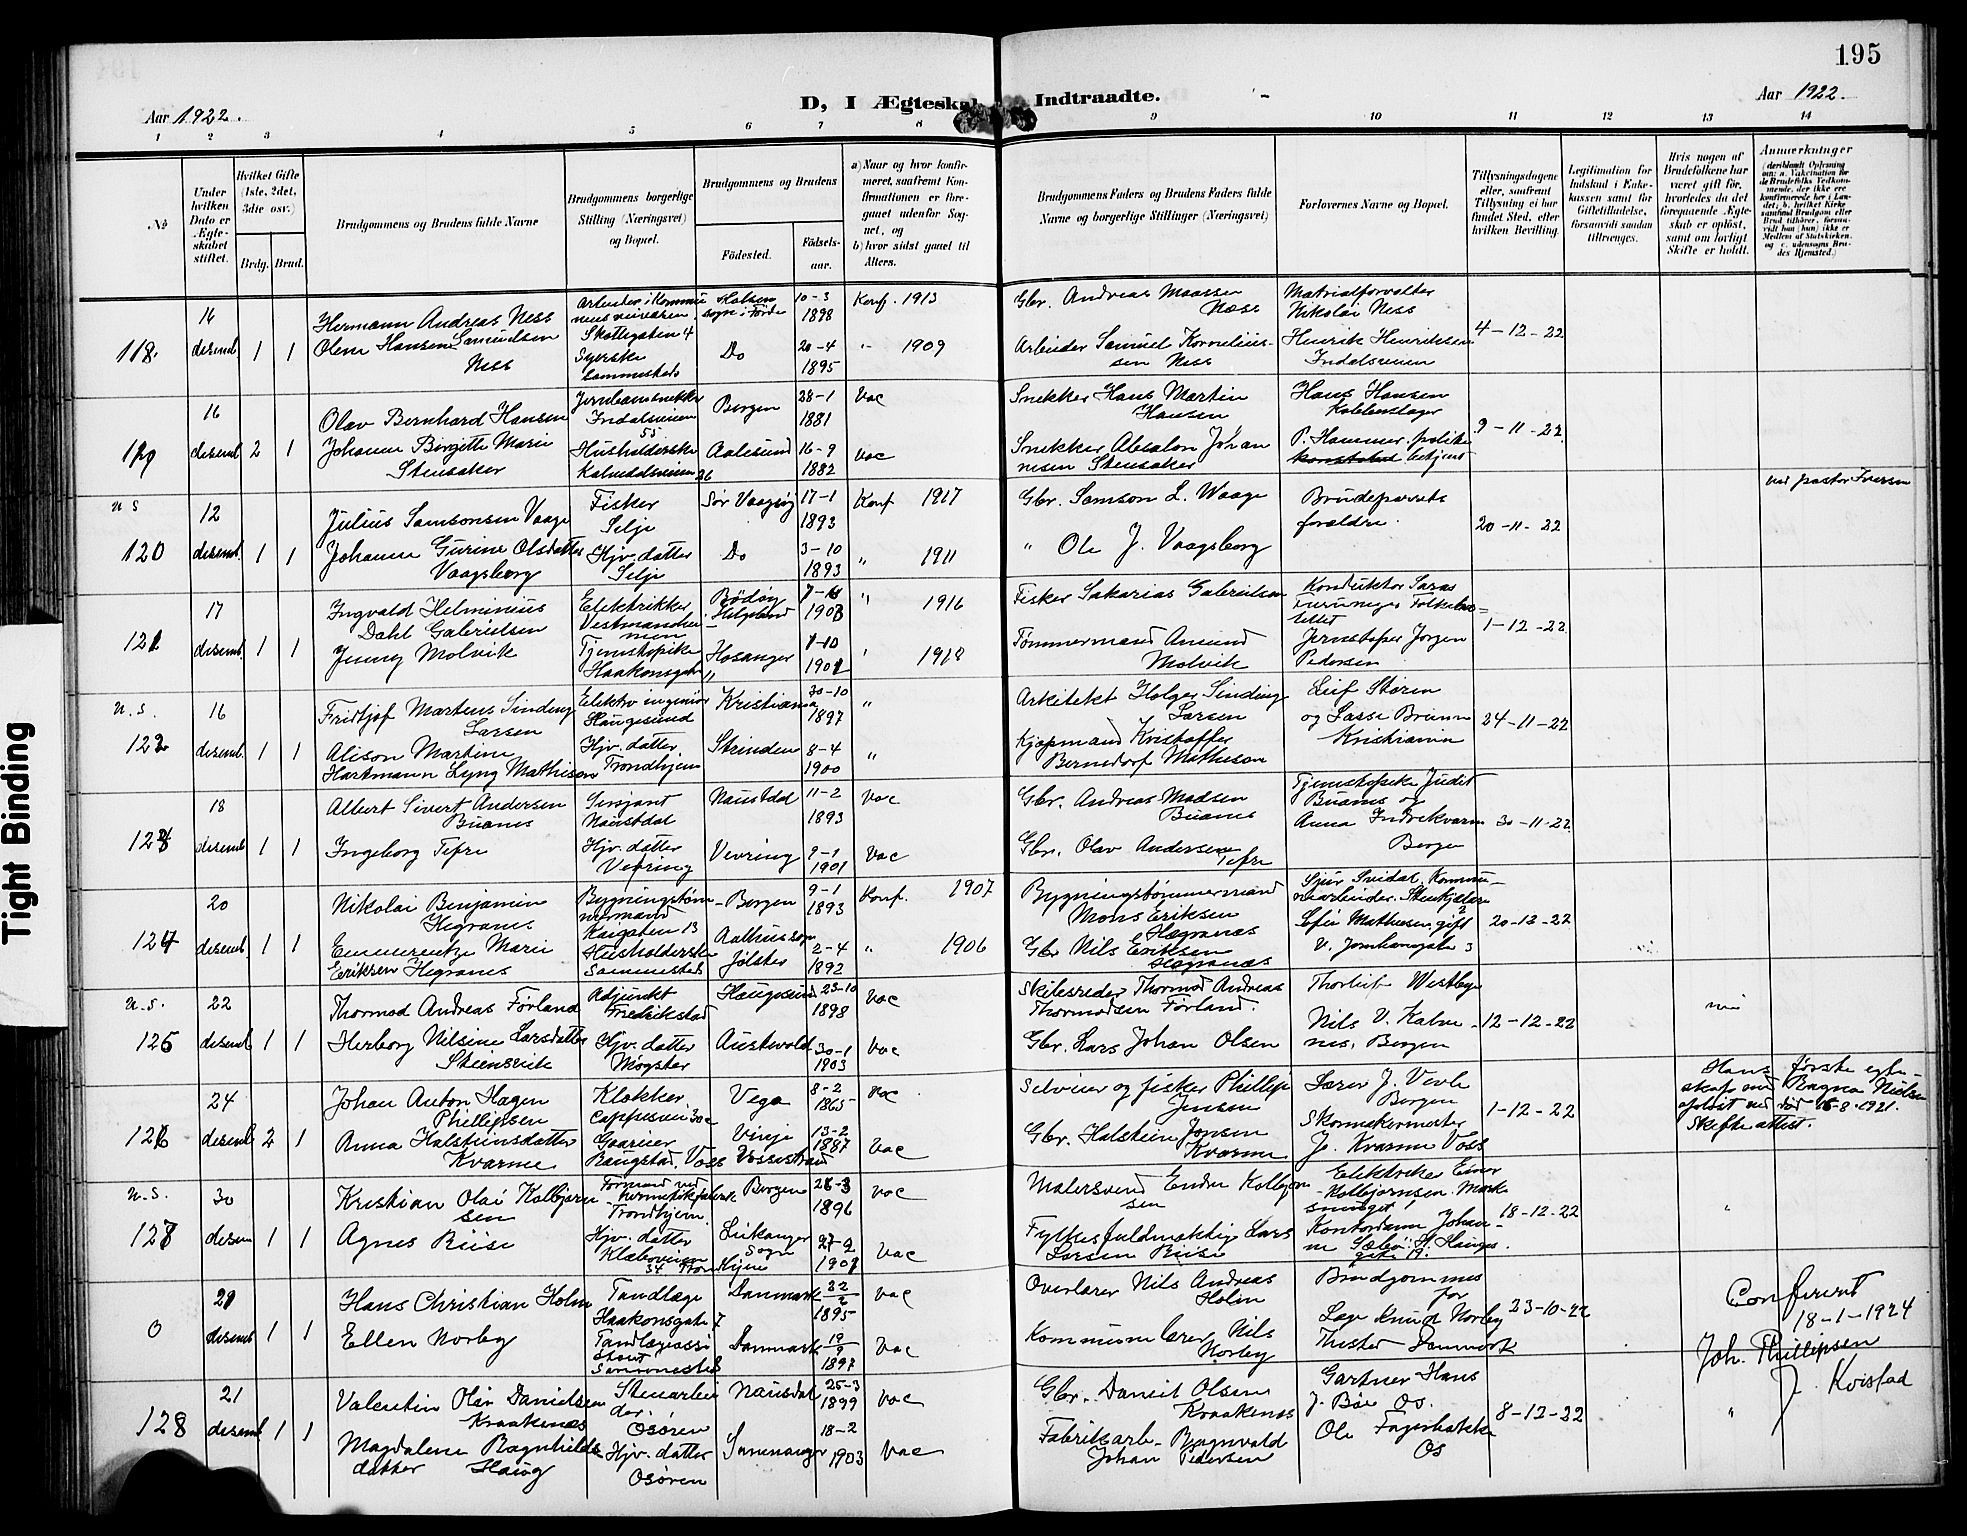 195
D, I Ægteska
Indtraadte.
Aar 1922.
Aar 1922.
1 2 3 4 5 6 7 8 9 10 11 12 13 14
№
Under hvilken Dato er Ægteskabet stiftet.
Hvilket Gifte (1ste, 2det, 3die osv.)
Brdg. Brud.
Brudgommens og Brudens fulde Navne
Brudgommens borgerlige Stilling (Næringsvei) og Bopæl.
Brudgommens og Brudens
Fødested.
Fødselsaar.
a) Naar og hvor konfirmeret, saafremt Konfirmationen er foregaaet udenfor Sognet, og
b) hvor sidst gaaet til Alters.
Brudgommens Faders og Brudens Faders fulde Navne og borgerlige Stillinger (Næringsvei)
Forlovernes Navne og Bopæl.
Tillysningsdagene eller, saafremt Tillysning ei har fundet Sted, efter hvilken Bevilling.
Legitimation for Indskud i Enkekassen samt for Giftetilladelse, forsaavidt saadan tiltrænges.
Hvis nogen af Brudefolkene har været gift før, hvorledes da det foregaaende Ægteskab er opløst, samt om lovligt Skifte er holdt.
Anmærkninger
118. 16 desemb. 1 1
Hermann Andreas Ness
Olene Hansine Samuelsen Ness
Skattegaten 4
Syerske sammesteds
Do
10-3 1898
20-4 1895
Konf. 1913
" 1909
Gbr. Andreas Maassen Næss
Arbeider Samuel Korneliussen Ness
Matrialforvalter Nikolai Ness
Henrik Henriksen Indalsveien
4-12-22
119 16 desemb 2 1
Olav Bernhard Hansen
Johanne Birgitte Marie Stensaker
Jernbanesnekker Indalsveien 55
Husholderske Kalvedalsveien 26
Bergen
Aalesund
28-1 1881
16-9 1882
vac
vac
Snekker Hans Martin Hansen
Snekker Absalon Johannesen Stensaker
Hans Hansen
P. Hammer politibetjent
9-11-22
u s
120 12 desemb. 1 1
Julius Samsonsen Vaage
Johanne Gurine Olsdatter Vaagsberg
Fisker Selje
Hjv. datter Selje
Sør Vaagsøy
Do
17-1 1893
3-10 1893
Konf 1917
" 1911
Gbr. Samson L. Waage
" Ole J. Vaagsberg
Brudeparrets forældre.
20-11-22
ved pastor Iversen
121 17 desemb. 1 1
Ingvald Helminius Dahl Gabrielsen
Jenny Molvik
Elektrikker
Tjenestepike Haakonsgate
Bødøy Helgeland
Hosanger
" 1916
' 1918
Fisker Sakarias Gabrielsen
Tømmermand Amund Molvik
Jørgen Pedersen
1-12-22
u.s.
122 16 desemb. 1 1
Fridtjof Martens Sinding Larsen
Alison Martine Hartmann Lyng Mathisen
Elektro ingeniør Haugesund
Hjv. datter. Trondhjem
Kristiania
Strinden
30-10 1897
8-4 1900
"
"
Arkitekt Holger Sinding Larsen
Kjøpmand Kristoffer Berndorf Mathisen
Leif Støren og Lasse Bruun Kristiania
24-11-22
123 18 desemb 1 1
Albert Sivert Andersen Buanes
Ingeborg Tefre
Sersjant Naustdal
Hjv. datter Vevring
Naustdal
Vevring
11-2 1893
9-1 1901
vac
vac
Gbr. Andreas Madsen Buanes
Gbr. Olav Andersen Tefre
Tjenestepike Judit Buanes og Anna Indrekvam Bergen
30-11-22
124 20 desemb. 1 1
Nikolai Benjamin Hegranes
Emmerentze Marie Eriksen Hegranes
Bygningstømmermand Kaigaten 13
Husholderske Sammesteds
Bergen
Aalhus sogn Jølster
9-1 1893
2-4 1892
Konf. 1907
" 1906
Bygningstømmermand Mons Eriksen Hegranæs
Gbr Nils Eriksen Hegranæs
20-12-22
u.s.
125 22 desemb 1 1
Thormod Andreas Førland
Herborg Nilsine Larsdatter Steinsvik
Adjunkt Fredrikstad
Hjv. datter Møgster
Haugesund
Austevold
23-10 1898
30-1 1903
vac
vac
Skibsreder Thormod Andreas Thormodsen Førland.
Gbr. Lars Johan Olsen
Thorleif Westbye
Nils V. Kalvenes, Bergen
12-12-22
126 24 desemb 2 1
Johan Anton Hagen Phillipsen
Anna Halsteinsdatter Kvarme
Klokker
Raugstad, Voss
Vega
Vinje Vossestrand
8-2 1865
13-2 1887
vac
vac
Selveier og fisker Phillip Jensen
Gbr. Halstein Jonsen Kvarme
Lærer J. Vevle Bergen
Skomakermester J. Kvarme Voss
1-12-22
Hans første egteskap med Ragna Nielsen opløst ved død 15-8-1921. Skifte attest.
u.s.
127 30 desem 1 1
Kristian Olai Kolbjørnsen
Agnes Riise
Formand ved hermetikfabrik Trondhjem.
Hjv. datter
Bergen
Leikanger sogn
1896
vac
vac
Malersvend Endre Kolbjørnsen
Fylkesfuldmektig Lars Larsen Riise
Elektriker Einar Kolbjørnsen
18-12-22
"
0 desemb 1 1
Hans Christian Holm
Ellen Norby
Tandlæge Haakonsgate 7
Tandlægeassistent Sammesteds
Danmark
Danmark
22/2 1895
19/9 1897
vac
vac
Overlærer Nils Andreas Holm
Kommunelærer Nils Norby
Brudgommens far
Læge Knud Norby Thisted Danmark
23-10-22
Conferert 18-1-1924
Joh. Phillipsen
J. Kvistad
128 21 desemb 1 1
Valentin Olai Danielsen Kraakenæs
Magdalene Ragnhildsdatter Haug
Stenarbeider. Osøren
Hjv. datter Osøren
Nausdal
Samnanger
25-3 1899
18-2 1903
vac
vac
Gbr. Daniel Olsen Kraakenæs
Fabrikarb. Ragnvald Johan Pedersen
Gartner Hans J. Bøe Os.
Ole Fagerbakke Os
8-12-22
"
Tight Binding